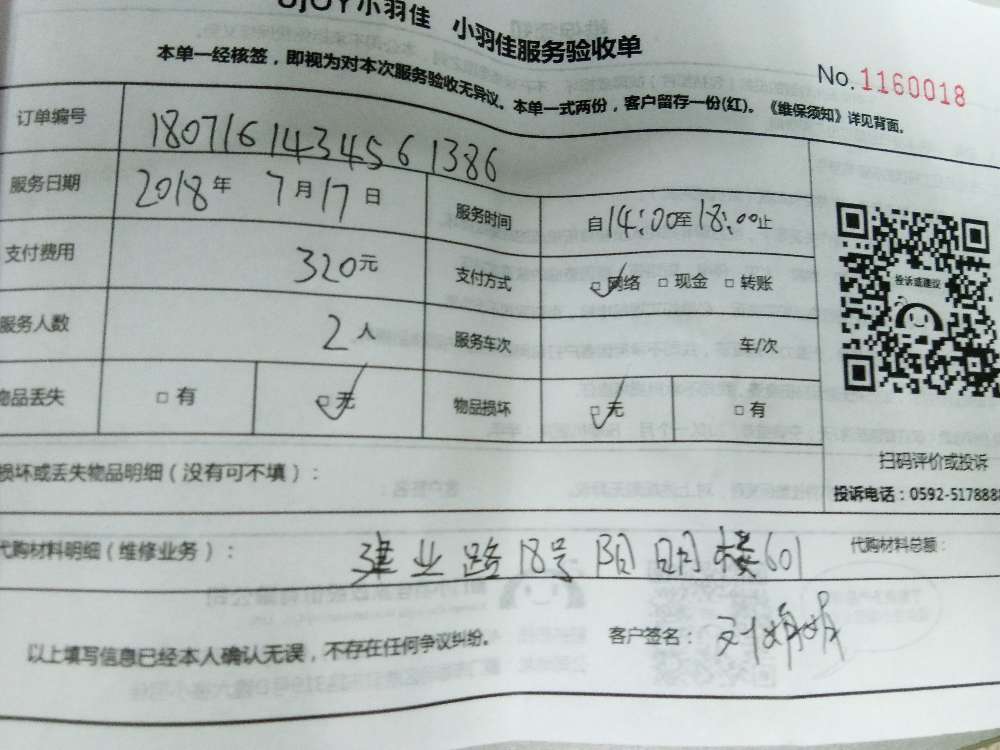 小羽佳 小羽佳服务验收单
本单一经核签，即视为对本次服务验收无异议。本单一式两份，客户留存一份(红)。《维保须知》详见背面。
No.1160018
订单编号 180716143456 1386
服务日期 2018年 7月17日 服务时间 自14:00至18:00止
支付费用 320元 支付方式 □网络 □现金 □转账
服务人数 2人 服务车次 车/次
物品丢失 □有 □无 物品损坏 □无 □有
投诉或建议
扫码评价或投诉
投诉电话：0592-5178888
损坏或丢失物品明细（没有可不填）：
代购材料明细（维修业务）： 建业路18号阳明楼601 代购材料总额：
以上填写信息已经本人确认无误，不存在任何争议纠纷。 客户签名：